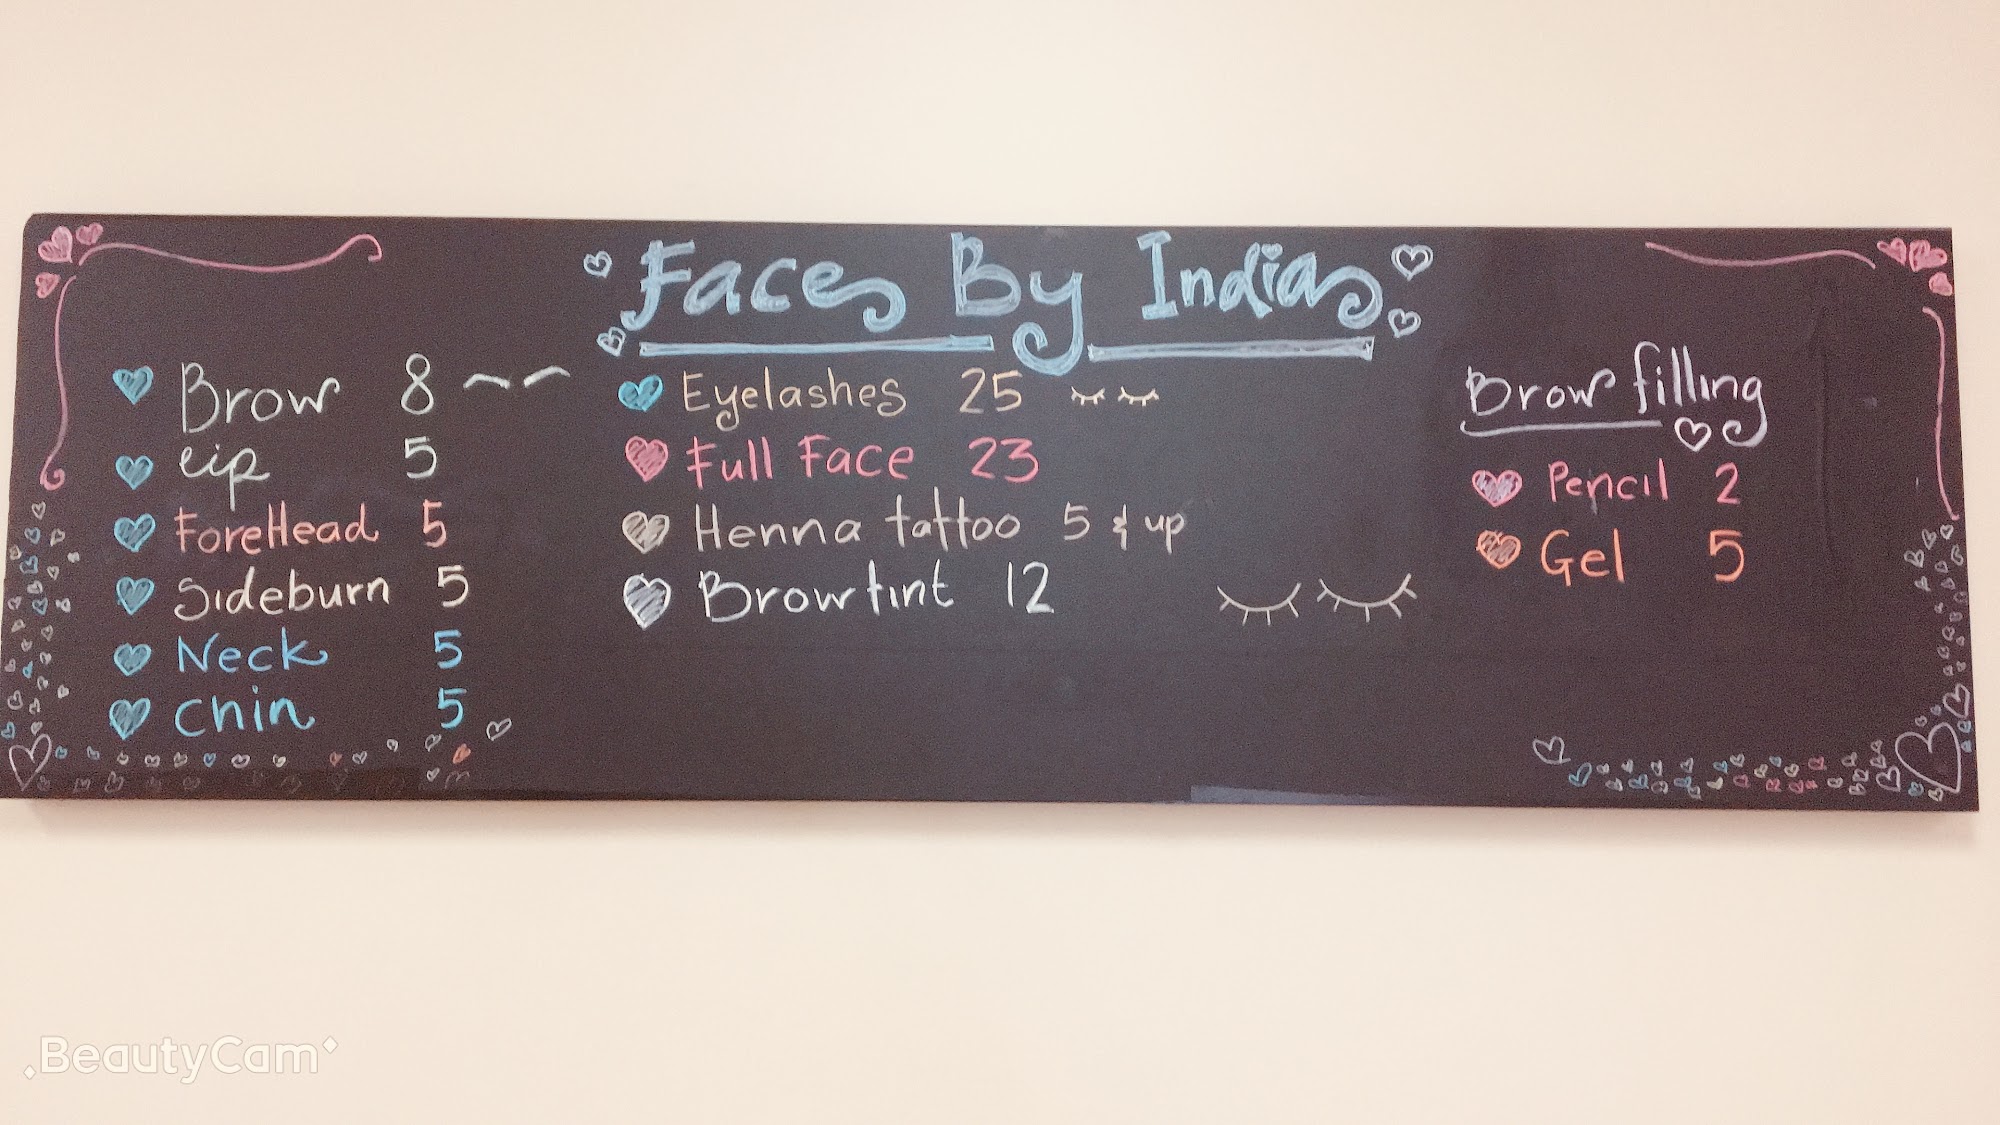 Faces By India
Brow 8
Lip 5
ForeHead 5
Sideburn 5
Neck 5
Chin 5
Eyelashes 25
Full Face 23
Henna tattoo 5 & up
Brow tint 12
Brow filling
Pencil 2
Gel 5
BeautyCam